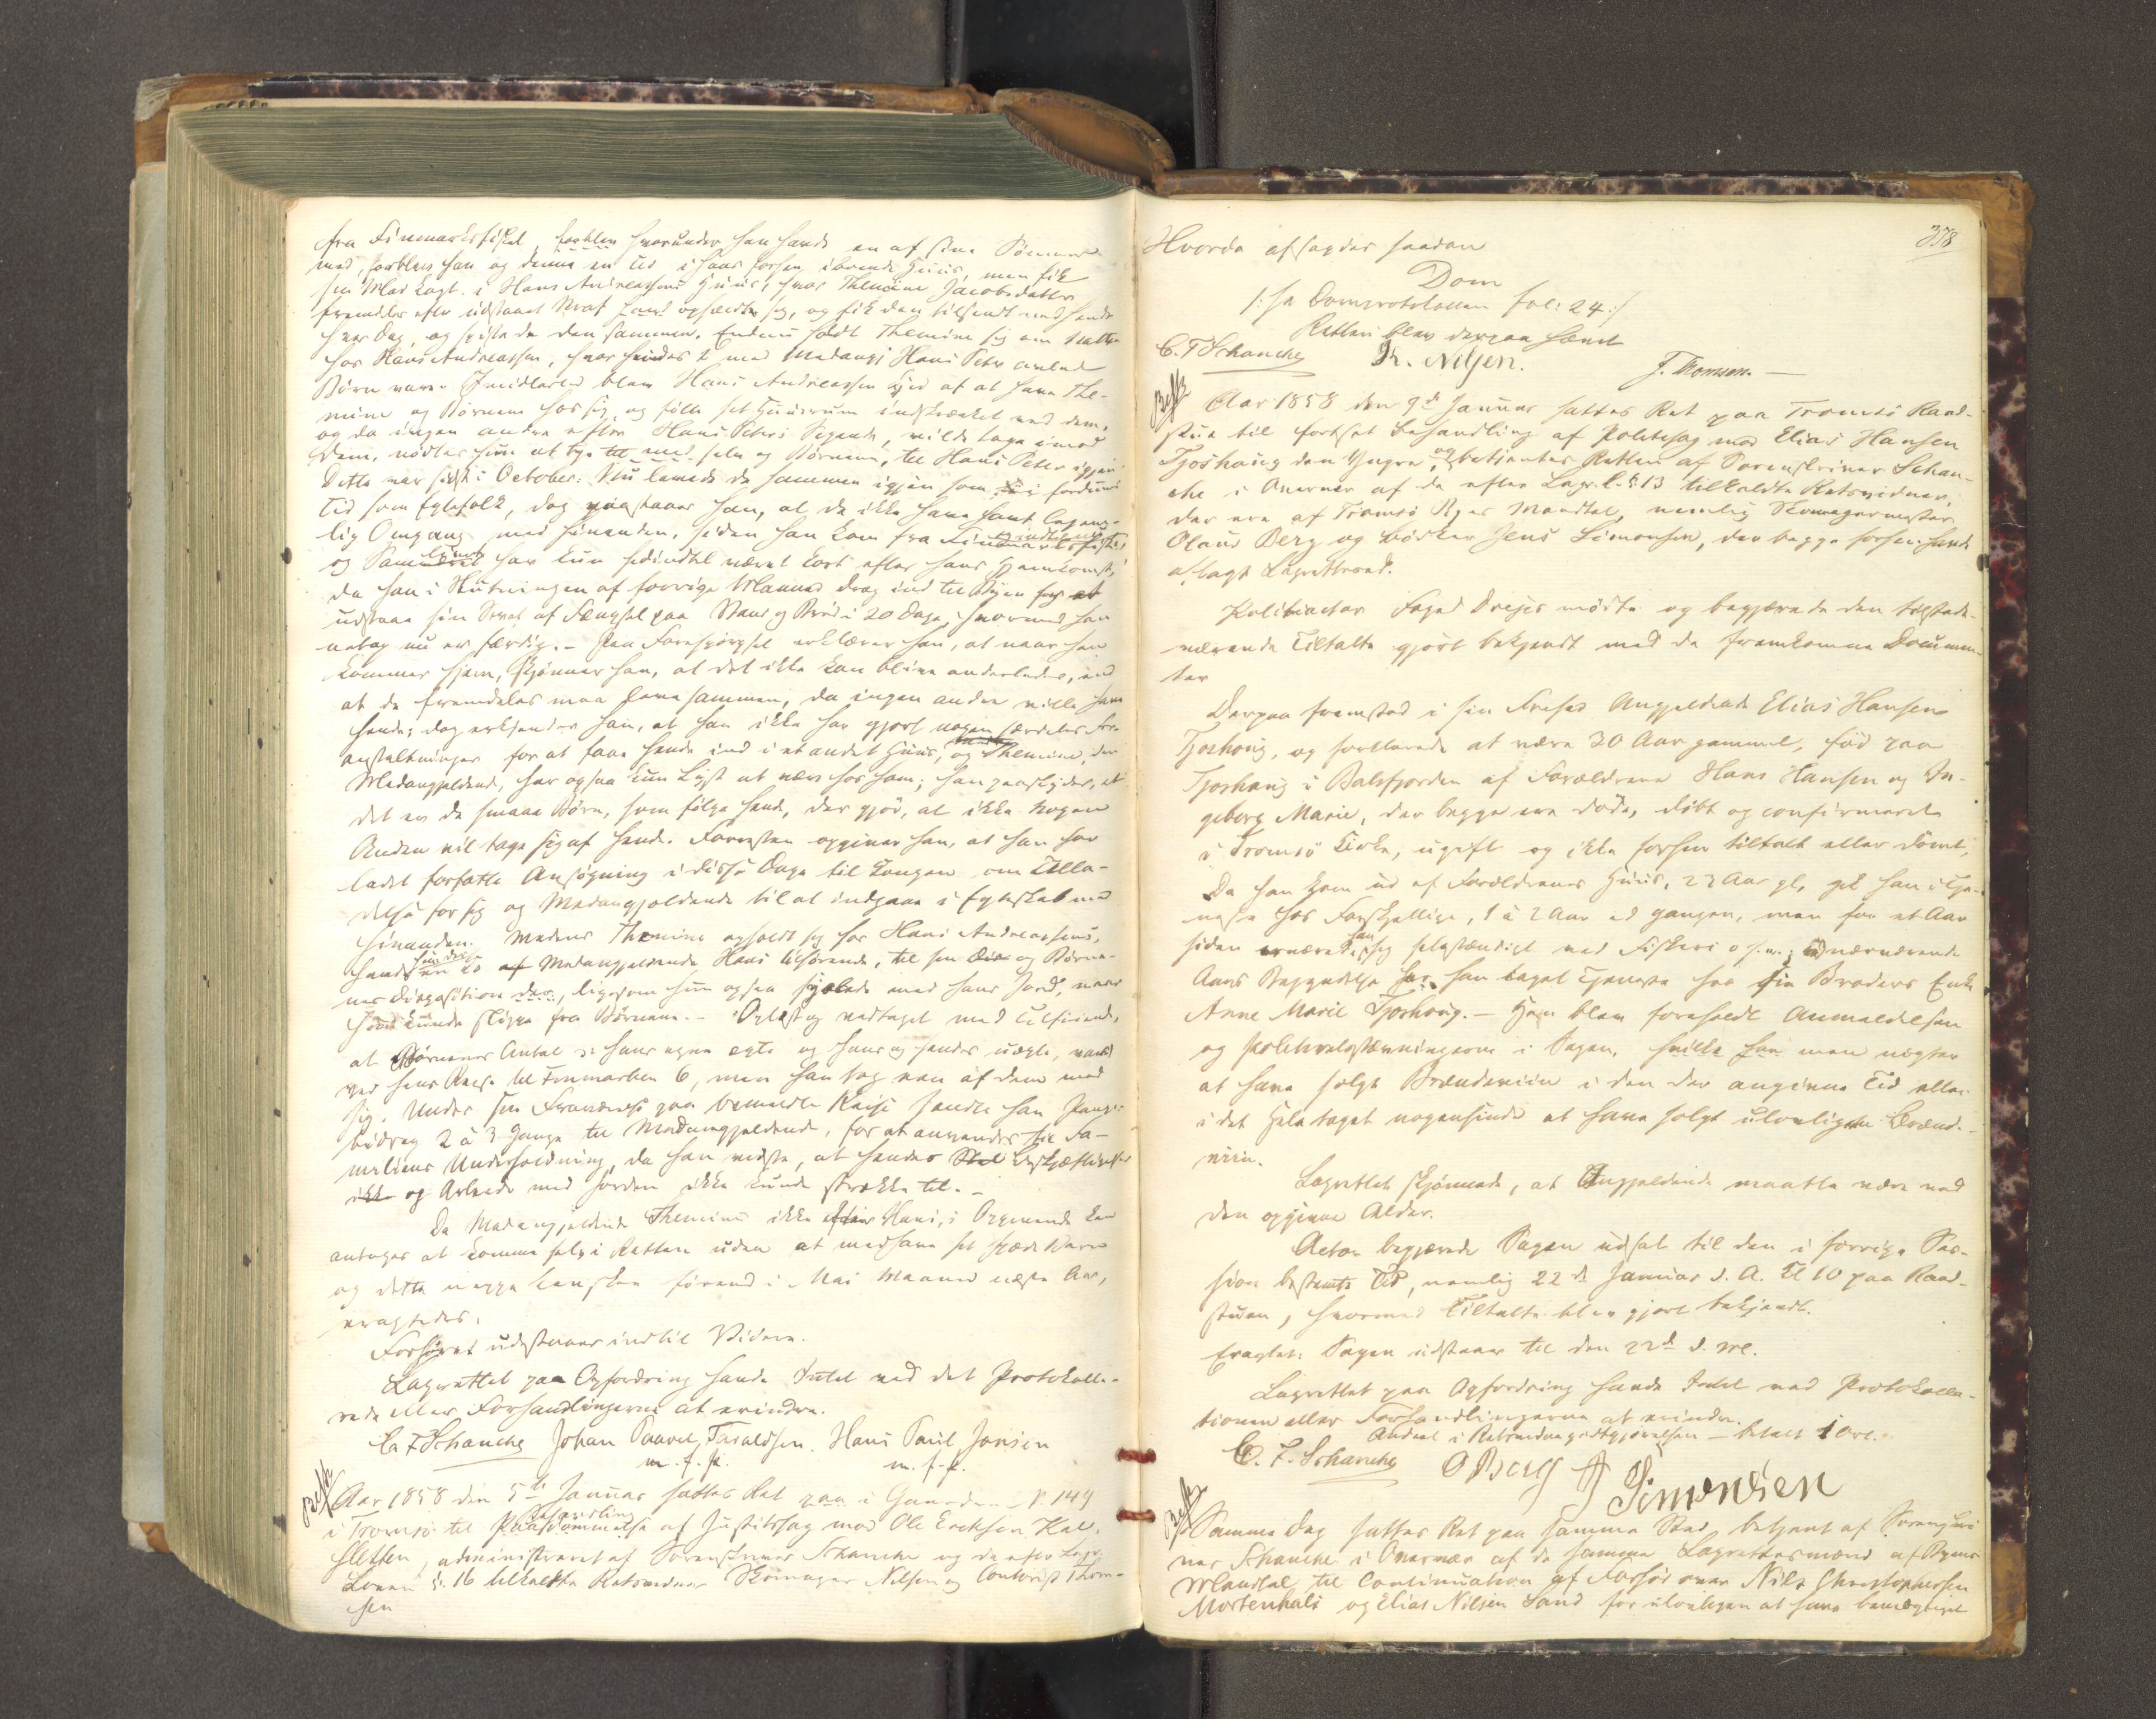 fra Finmarksfisket, hvorunder han havde en af sine Sønner
med, forblev han og denne en Tid i hans forhen iboende Huus, men fik
sin Mad kogt i Hans Andreassens Huus, hvor Themine Jacobsdatter
fremdeles efter udstaaet Straf opholdt sig, og fik den tilsendt ved hende
hver Dag, og spiste de den sammen. Endnu holdt Themine sig om Natten
hos Hans Andreassen, hvor hendes 2 med Medang. Hans Peter avlede
Børn vare. Imidlertid blev Hans Andreassen kjed af at have The-
mine og Børnene hos sig, og følte sit Huusrum indskrænket ved dem,
og da ingen andre efter Hans Peters Sigende, vilde tage imod
dem, nødtes hun at tye til med selv og Børnene, til Hans Peter igjen.
Dette var sidst i October. Nu levede de sammen igjen som i fordums
Tid som Egtefolk, dog paastaaer han, at de ikke have havt legem-
lig Omgang med hinanden, siden han kom fra Finmarksfisket,
og Samlivet har kun hidindtil været kort efter hans Hjemkomst,
da han i Slutningen af forrige Maaned drog ind til Byen for at
udstaae sin Straf af Fængsel paa Vand og Brød i 20 Dage, hvormed han
netop nu er færdig. – Paa Forespørgsel erklærer han, at naar han
kommer hjem, skjønner han, at det ikke kan blive anderledes, end
at de fremdeles maa leve sammen, da ingen anden ville have
hende; dog erkjender han, at han ikke har gjort nogen særdeles For-
anstaltninger for at faae hende ind i et andet Huus, og Themine, den
Medangjeldende, har ogsaa kun Lyst at være hos ham; han paaskyder, at
det er de smaae Børn, som følge hende, der gjør, at ikke nogen
Anden vil tage sig af hende. Forresten opgiver han, at han har
ladet forfatte Ansøgning i disse Dage til Kongen om Tilla-
delse for sig og Medangjeldende til at indgaae i Egteskab med
hinanden. Medens Themine opholdt sig hos Hans Andreassens,
havde hun den Ko af Medangjeldende Hans tilhørende, til sin og Børne-
nes Disposition der, ligesom hun ogsaa sjelede med hans Jord, naar
hun kunde slippe fra Børnene. – Oplæst og vedtaget med Tilføiende,
at Børnenes Antal : hans egne egte og hans og hendes uegte, vare
ved hans Reise til Finmarken 6, men han tog een af dem med
sig. Under sin Fraværelse paa bemeldte Reise sendte han Penge-
bidrag 2 à 3 Gange til Medangjeldende, for at anvendes til Fa-
miliens Underholdning, da han vidste, at hendes Beskjæftigelse
ikke og Arbeide med Jorden ikke kunde strække til. –
Da Medangjeldende Themine ikke efter Hans, i Opgivende kan
antages at komme selv i Retten uden at medhave sit spæde Barn
og dette neppe kan skee førend i Mai Maaned næste Aar,
eragtedes:
Forhøret udstaaer indtil Videre.
Lagrettet paa Opfordring havde Intet ved det Protokolle-
rede eller Forhandlingerne at erindre.
C. F. Schanche Johan Paavel Taraldsen. Hans Paul Jensen
m. f. P. m. f. P.
Aar 1858 den 5te Januar sattes Ret paa i Gaarden No. 149
i Tromsø til Behandling Paadømmelse af Justitssag mod Ole Ericksen Kal-
sletten, administreret af Sorenskriver Schanche og de efter Lagr.
Loven §. 16 tilkaldte Retsvidner Skomager Nilsen og Contorist Thom-
sen
378
Hvorda afsagdes saadan
Dom
/: se Domsprotokollen fol: 24 :/
Retten blev derpaa hævet
C. F. Schanche R. Nilsen. J. Thomsen. –
Aar 1858 den 9de Januar sattes Ret paa Tromsø Raad-
stue til fortsat Behandling af Politisag mod Elias Hansen
Tjoshaug den Yngre, og betjentes Retten af Sorenskriver Schan-
che i Overvær af de efter Lagr. L. § 13 tilkaldte Retsvidner,
der ere af Tromsø Byes Mandtal, nemlig Skomagermester
Olaus Berg og Bødker Jens Simonsen, der begge forhen havde
aflagt Lagretteed.
Politiactor Foged Drejer mødte og begjærede den tilstede-
værende Tiltalte gjort bekjendt med de fremkomne Docume-
ter
Derpaa fremstod i sin Frihed Angjeldende Elias Hansen
Tjoshaug, og forklarede at være 30 Aar gammel, fød paa
Tjoshaug i Balsfjorden af Forældrene Hans Hansen og In-
geborg Marie, der begge ere døde, døbt og confirmeret
i Tromsø Kirke, ugift og ikke forhen tiltalt eller dømt,
Da han kom ud af Forældrenes Huus, 23 Aar gl., gik han i Tje-
neste hos Forskjellige, 1 à 2 Aar ad gangen, men for et Aar
siden ernærede han sig selvstændigt ved Fiskeri o. s. v.; ved nærværende
Aars Begyndelse har han taget Tjeneste hos sin Broders Enke
Anne Marie Tjoshaug. – Han blev foreholdt Anmeldelsen
og Politivedtægterne i Sagen, hvilke han men nægter
at have solgt Brændeviin i den der angivne Tid eller
i det Hele taget nogensinde at have solgt ulovligen Brænde-
viin.
Lagrettet skjønnede, at Angjeldende maatte være ved
den opgivne Alder.
Actor begjærede Sagen udsat til den i forrige Ses-
sion bestemte Tid, nemlig 22de Januar d. A. Kl 10 paa Raad-
stuen, hvormed Tiltalte blev gjort bekjendt.
Eragtet: Sagen udstaaer til den 22de d. M.
Lagrettet paa Opfordring havde Intet ved Protokolla-
tionen eller Forhandlingerne at erindre.
Andeel i Retsvidnegodtgjørelsen – betalt 1 Ort.
C. F. Schanche O Berg J Simonsen
Samme Dag sattes Ret paa samme Sted, betjent af Sorenskri-
ver Schanche i Overvær af de samme Lagrettesmænd af Byens
Mandtal til Continuation af Forhør over Nils Christophersen
Mortenhals og Elias Nilsen Sand for ulovligen at have bemægtiget